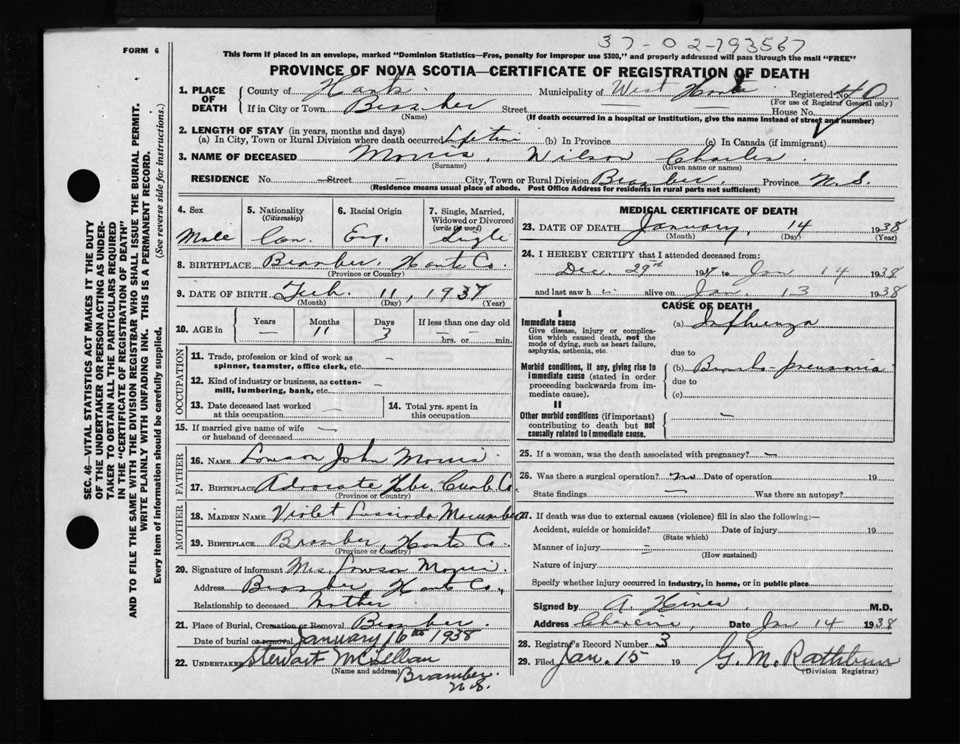 37-02-793567
FORM 6
This form if placed in an envelope, marked "Dominion Statistics—Free, penalty for improper use $300," and properly addressed will pass through the mail "FREE"
PROVINCE OF NOVA SCOTIA—CERTIFICATE OF REGISTRATION OF DEATH
SEC. 46—VITAL STATISTICS ACT MAKES IT THE DUTY
OF THE UNDERTAKER OR PERSON ACTING AS UNDER-
TAKER TO OBTAIN ALL THE PARTICULARS REQUIRED
IN THE "CERTIFICATE OF REGISTRATION OF DEATH"
AND TO FILE THE SAME WITH THE DIVISION REGISTRAR WHO SHALL ISSUE THE BURIAL PERMIT.
WRITE PLAINLY WITH UNFADING INK. THIS IS A PERMANENT RECORD.
Every item of information should be carefully supplied. (See reverse side for instructions.)
1. PLACE OF DEATH County of Hants Municipality of West Hants Registered No. 40
(For use of Registrar General only)
If in City or Town Bramber Street House No.
(Name) (If death occurred in a hospital or institution, give the name instead of street and number)
2. LENGTH OF STAY (in years, months and days)
(a) In City, Town or Rural Division where death occurred Lifetime (b) In Province (c) In Canada (if immigrant)
3. NAME OF DECEASED Morris, Wilson Charles.
(Surname) (Given name or names)
RESIDENCE No. — Street — City, Town or Rural Division Bramber. Province N.S.
(Residence means usual place of abode. Post Office Address for residents in rural parts not sufficient)
4. Sex Male
5. Nationality (Citizenship) Can.
6. Racial Origin Eng.
7. Single, Married, Widowed or Divorced (write the word) Single
8. BIRTHPLACE Bramber, Hants Co
(Province or Country)
9. DATE OF BIRTH Feb. 11, 1937
(Month) (Day) (Year)
10. AGE in Years Months 11 Days 3 If less than one day old hrs. or min.
OCCUPATION
11. Trade, profession or kind of work as spinner, teamster, office clerk, etc. —
12. Kind of industry or business, as cotton-mill, lumbering, bank, etc. —
13. Date deceased last worked at this occupation — 14. Total yrs. spent in this occupation
15. If married give name of wife or husband of deceased —
FATHER
16. NAME Lowson John Morris
17. BIRTHPLACE Advocate Hbr. Cumb. Co.
(Province or Country)
MOTHER
18. MAIDEN NAME Violet Lucinda Macumber
19. BIRTHPLACE Bramber, Hants Co.
(Province or Country)
20. Signature of informant Mrs. Lowson Morris.
Address Bramber Hants Co.,
Relationship to deceased Mother
21. Place of Burial, Cremation or Removal Bramber.
Date of burial or removal January 16th 1938
22. UNDERTAKER Stewart McLellan
(Name and address) Bramber
N.S.
MEDICAL CERTIFICATE OF DEATH
23. DATE OF DEATH January, 14 1938
(Month) (Day) (Year)
24. I HEREBY CERTIFY that I attended deceased from:
Dec. 29th 1937 to Jan 14 1938
and last saw h alive on Jan. 13 1938
CAUSE OF DEATH
I
Immediate cause
Give disease, injury or complication which caused death, not the mode of dying, such as heart failure, asphyxia, asthenia, etc.
(a) Influenza
due to
Morbid conditions, if any, giving rise to immediate cause (stated in order proceeding backwards from immediate cause).
(b) Broncho pneumonia
due to
(c)
II
Other morbid conditions (if important) contributing to death but not causally related to immediate cause. —
25. If a woman, was the death associated with pregnancy? —
26. Was there a surgical operation? No Date of operation 19
State findings — Was there an autopsy?
27. If death was due to external causes (violence) fill in also the following:—
Accident, suicide or homicide? Date of injury 19
(State which)
Manner of injury —
(How sustained)
Nature of injury
Specify whether injury occurred in industry, in home, or in public place
Signed by A Hines M.D.
Address Date Jan 14 1938
28. Registrar's Record Number 3
29. Filed Jan. 15 19 G. M. Rathburn
(Division Registrar)